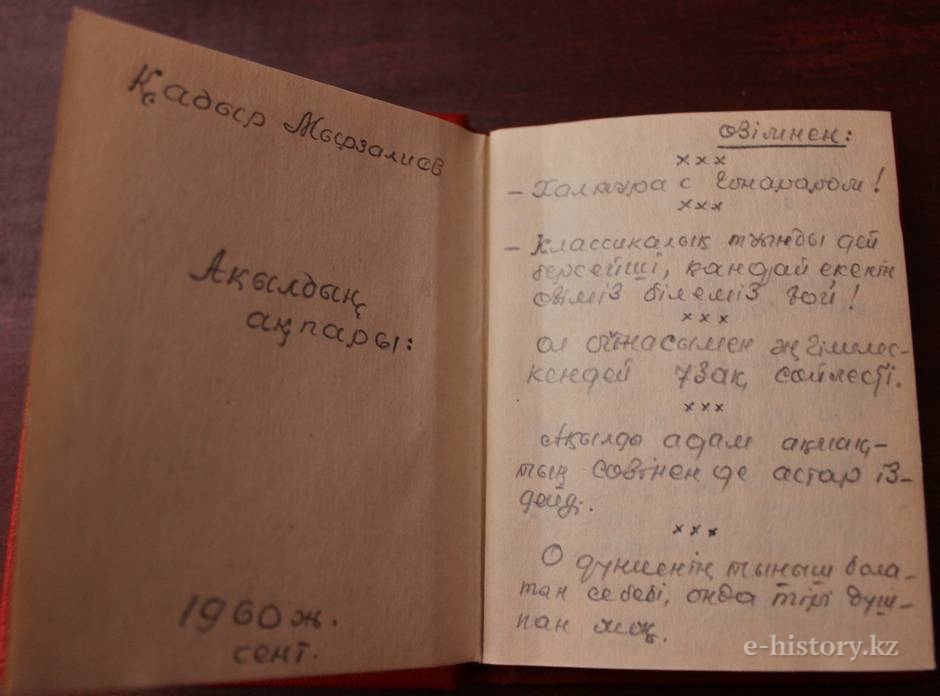 Қадыр Мырзалиев
Ақылдың
ақпары:
1960 ж.
сент.
өзімнен:
×××
– Халтура с гонараром!
×××
– Классикалық туынды дей
берсейші, қандай екенін
өзіміз білеміз ғой!
×××
ол айнасымен әңгімелес-
кендей ұзақ сөйлесті.
×××
Ақылды адам ақмақ-
тың сөзінен де астар із-
дейді.
×××
О дүниенің тыныш бола-
тын себебі, онда тірі душ-
пан жоқ.
e-history.kz